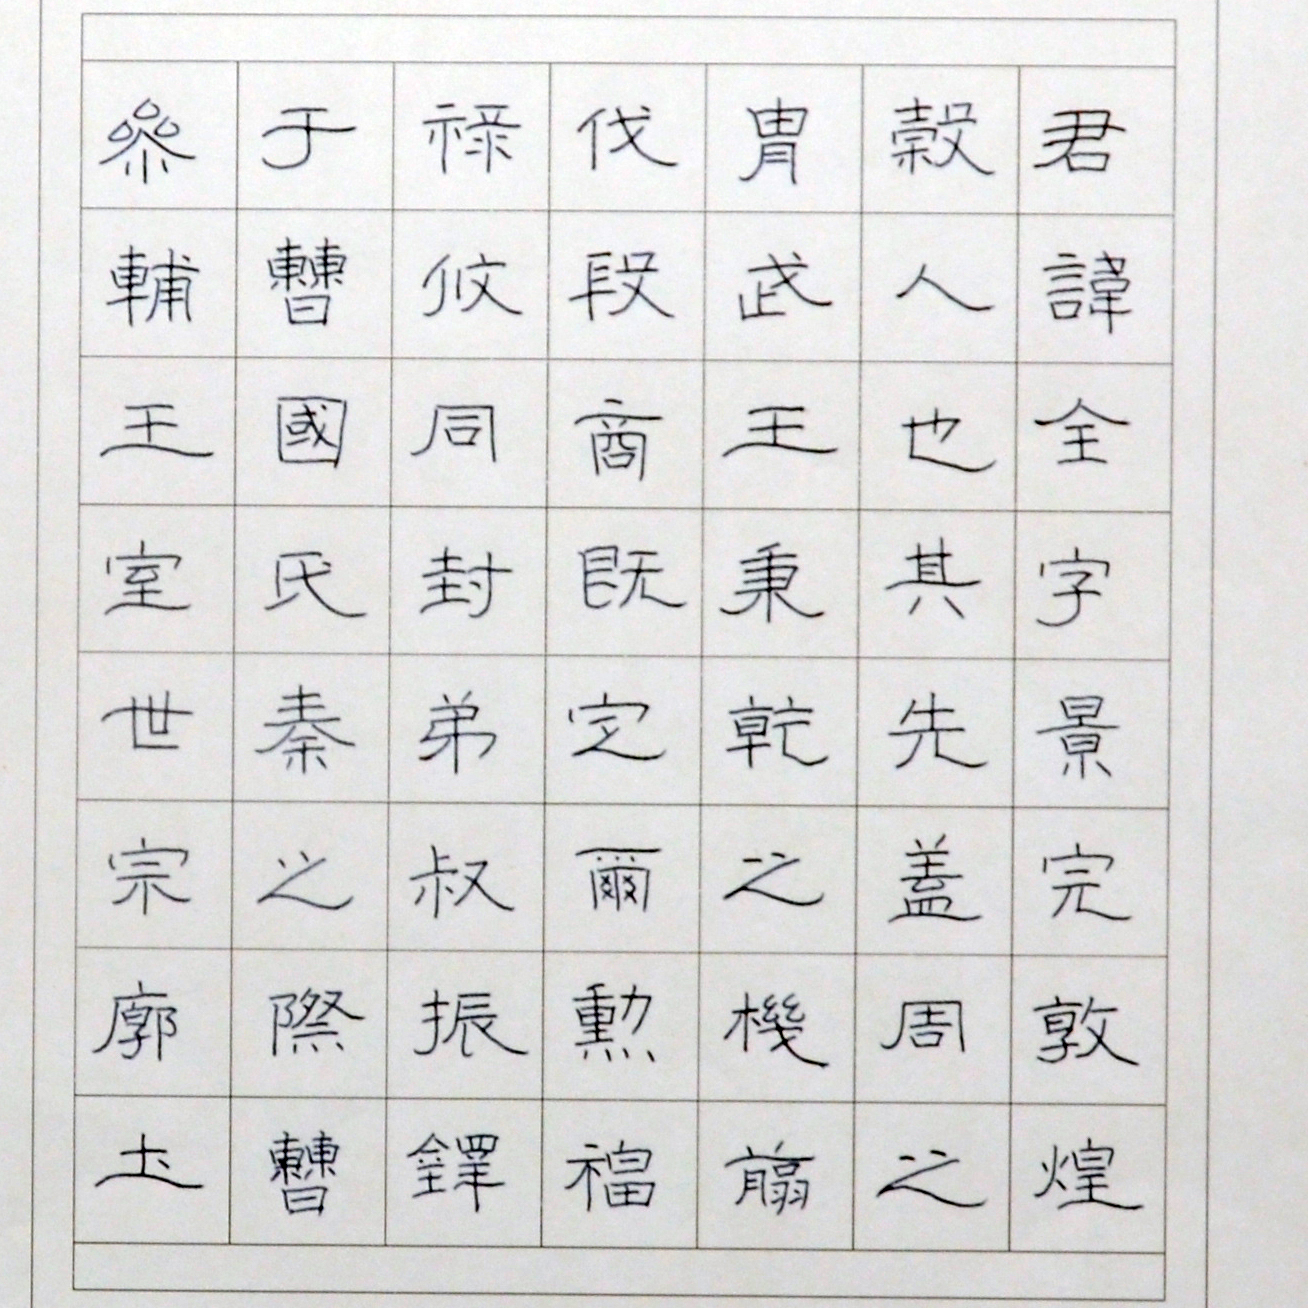 君諱全字景完敦煌
穀人也其先蓋周之
胄武王秉乾之機翦
伐殷商既定爾勳福
祿攸同封弟叔振鐸
于曹國氏秦之際曹
參輔王室世宗廓土